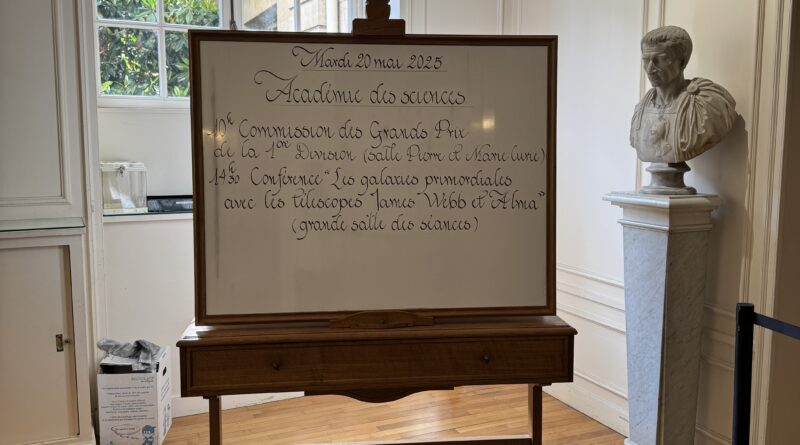 Mardi 20 mai 2025
Académie des sciences
10h Commission des Grands Prix
de la 1ère Division (salle Pierre et Marie Curie)
14h30 Conférence "Les galaxies primordiales
avec les télescopes James Webb et Alma"
(grande salle des séances)